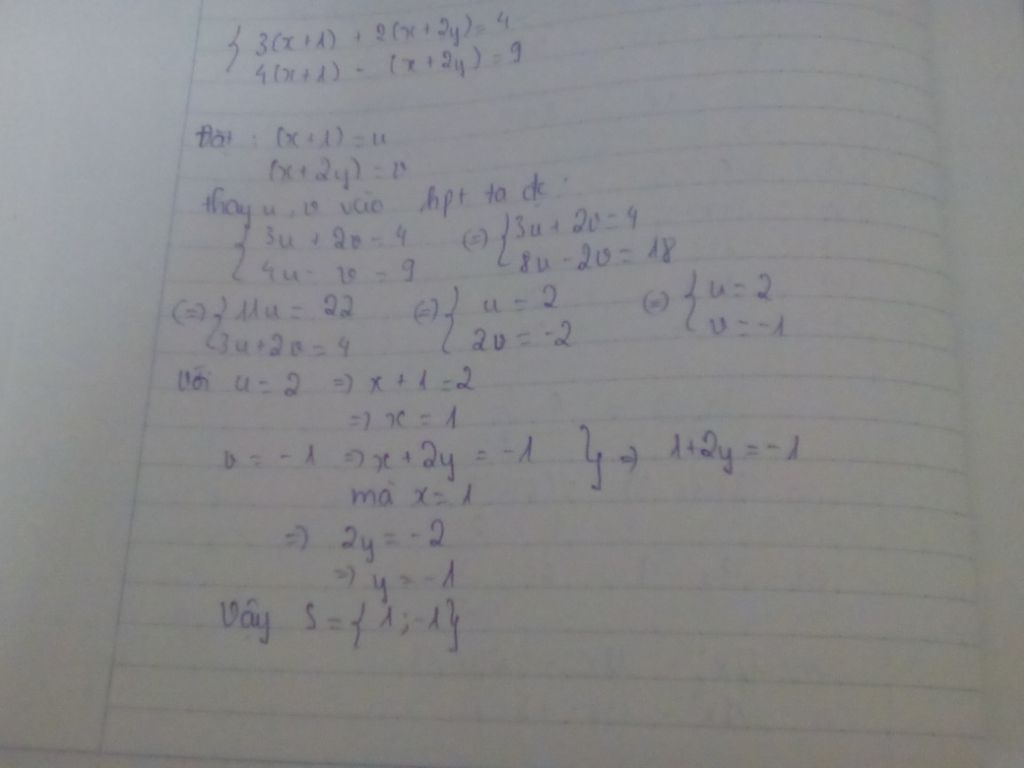 { 3(x+1) + 2(x+2y) = 4
4(x+1) - (x+2y) = 9
Đặt : (x+1) = u
(x+2y) = v
thay u, v vào hpt ta đc :
{ 3u + 2v = 4 (=) { 3u + 2v = 4
4u - v = 9 8u - 2v = 18
(=) { 11u = 22 (=) { u = 2 (=) { u = 2
3u + 2v = 4 2v = -2 v = -1
Với u = 2 => x + 1 = 2
=> x = 1
v = -1 => x + 2y = -1 } => 1 + 2y = -1
mà x = 1
=> 2y = -2
=> y = -1
Vậy S = { 1 ; -1 }